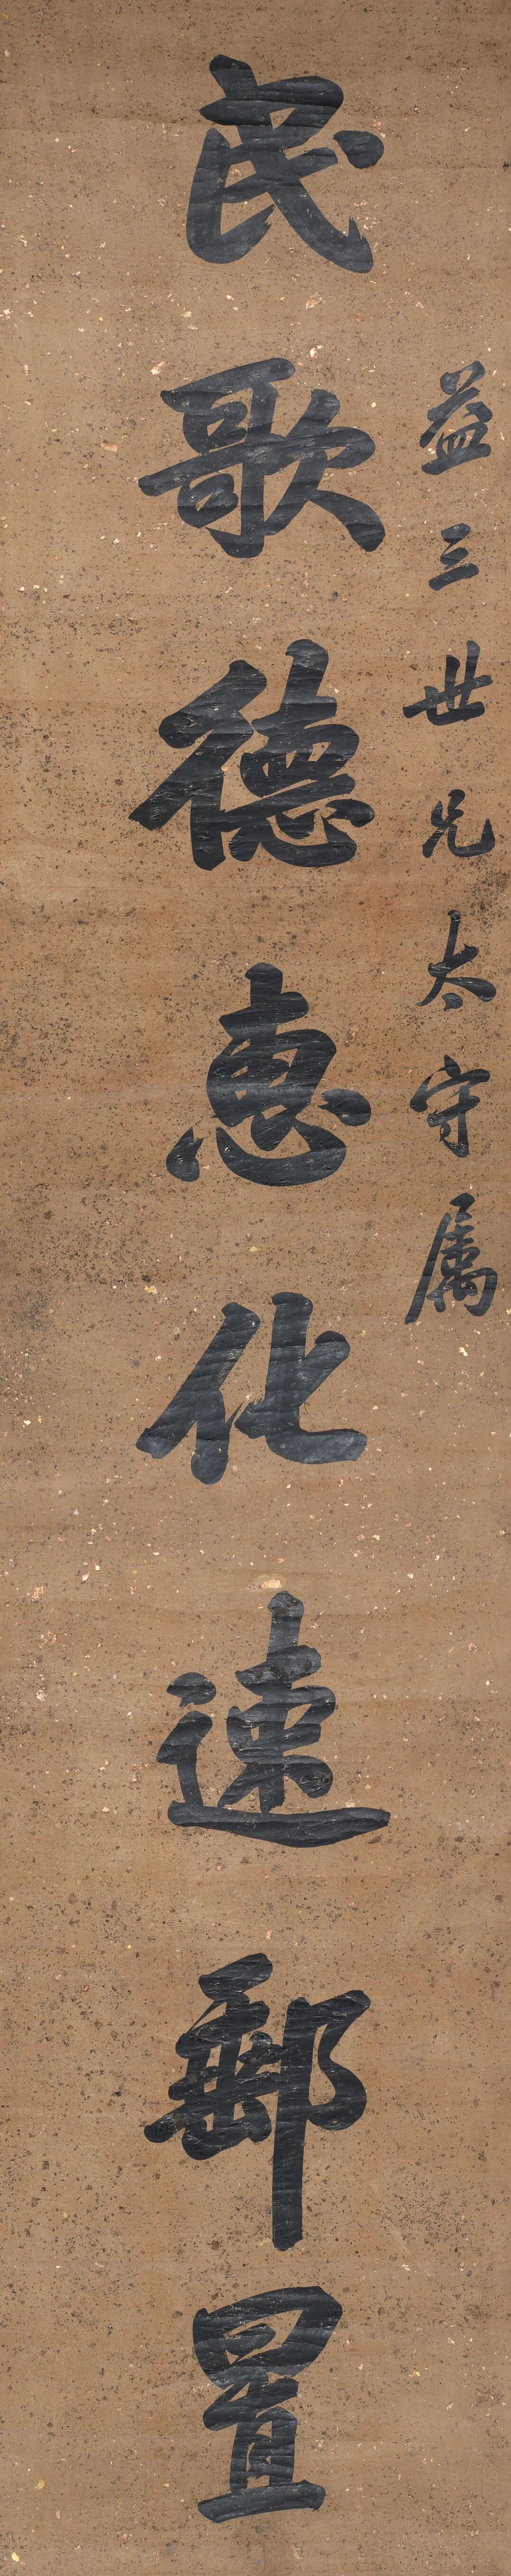 益三世兄太守属
民歌德惠化速郵置